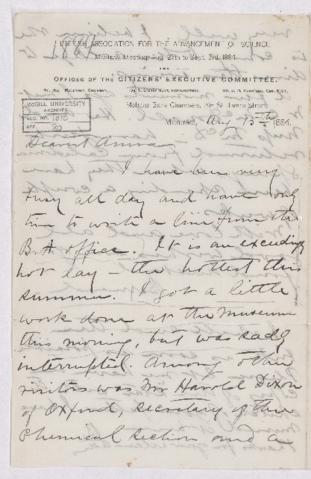 BRITISH ASSOCIATION FOR THE ADVANCEMENT OF SCIENCE
Montreal Meeting, Aug. 27th to Sept. 3rd, 1884.
OFFICES OF THE CITIZENS' EXECUTIVE COMMITTEE.
Molsons Bank Chambers, St. James Street
McGILL UNIVERSITY
ARCHIVES
ACC. NO.
REF.
Montreal, Aug 1884.
Dearest Anna
I have been very
busy all day and have only
time to write a line from the
B.A office. It is an exceeding
hot day – the hottest this
summer. I got a little
work done at the Museum
this morning, but was sadly
interrupted. Among other
visitors was Mr Harold Dixon
of Oxford, secretary of the
Chemical section and a